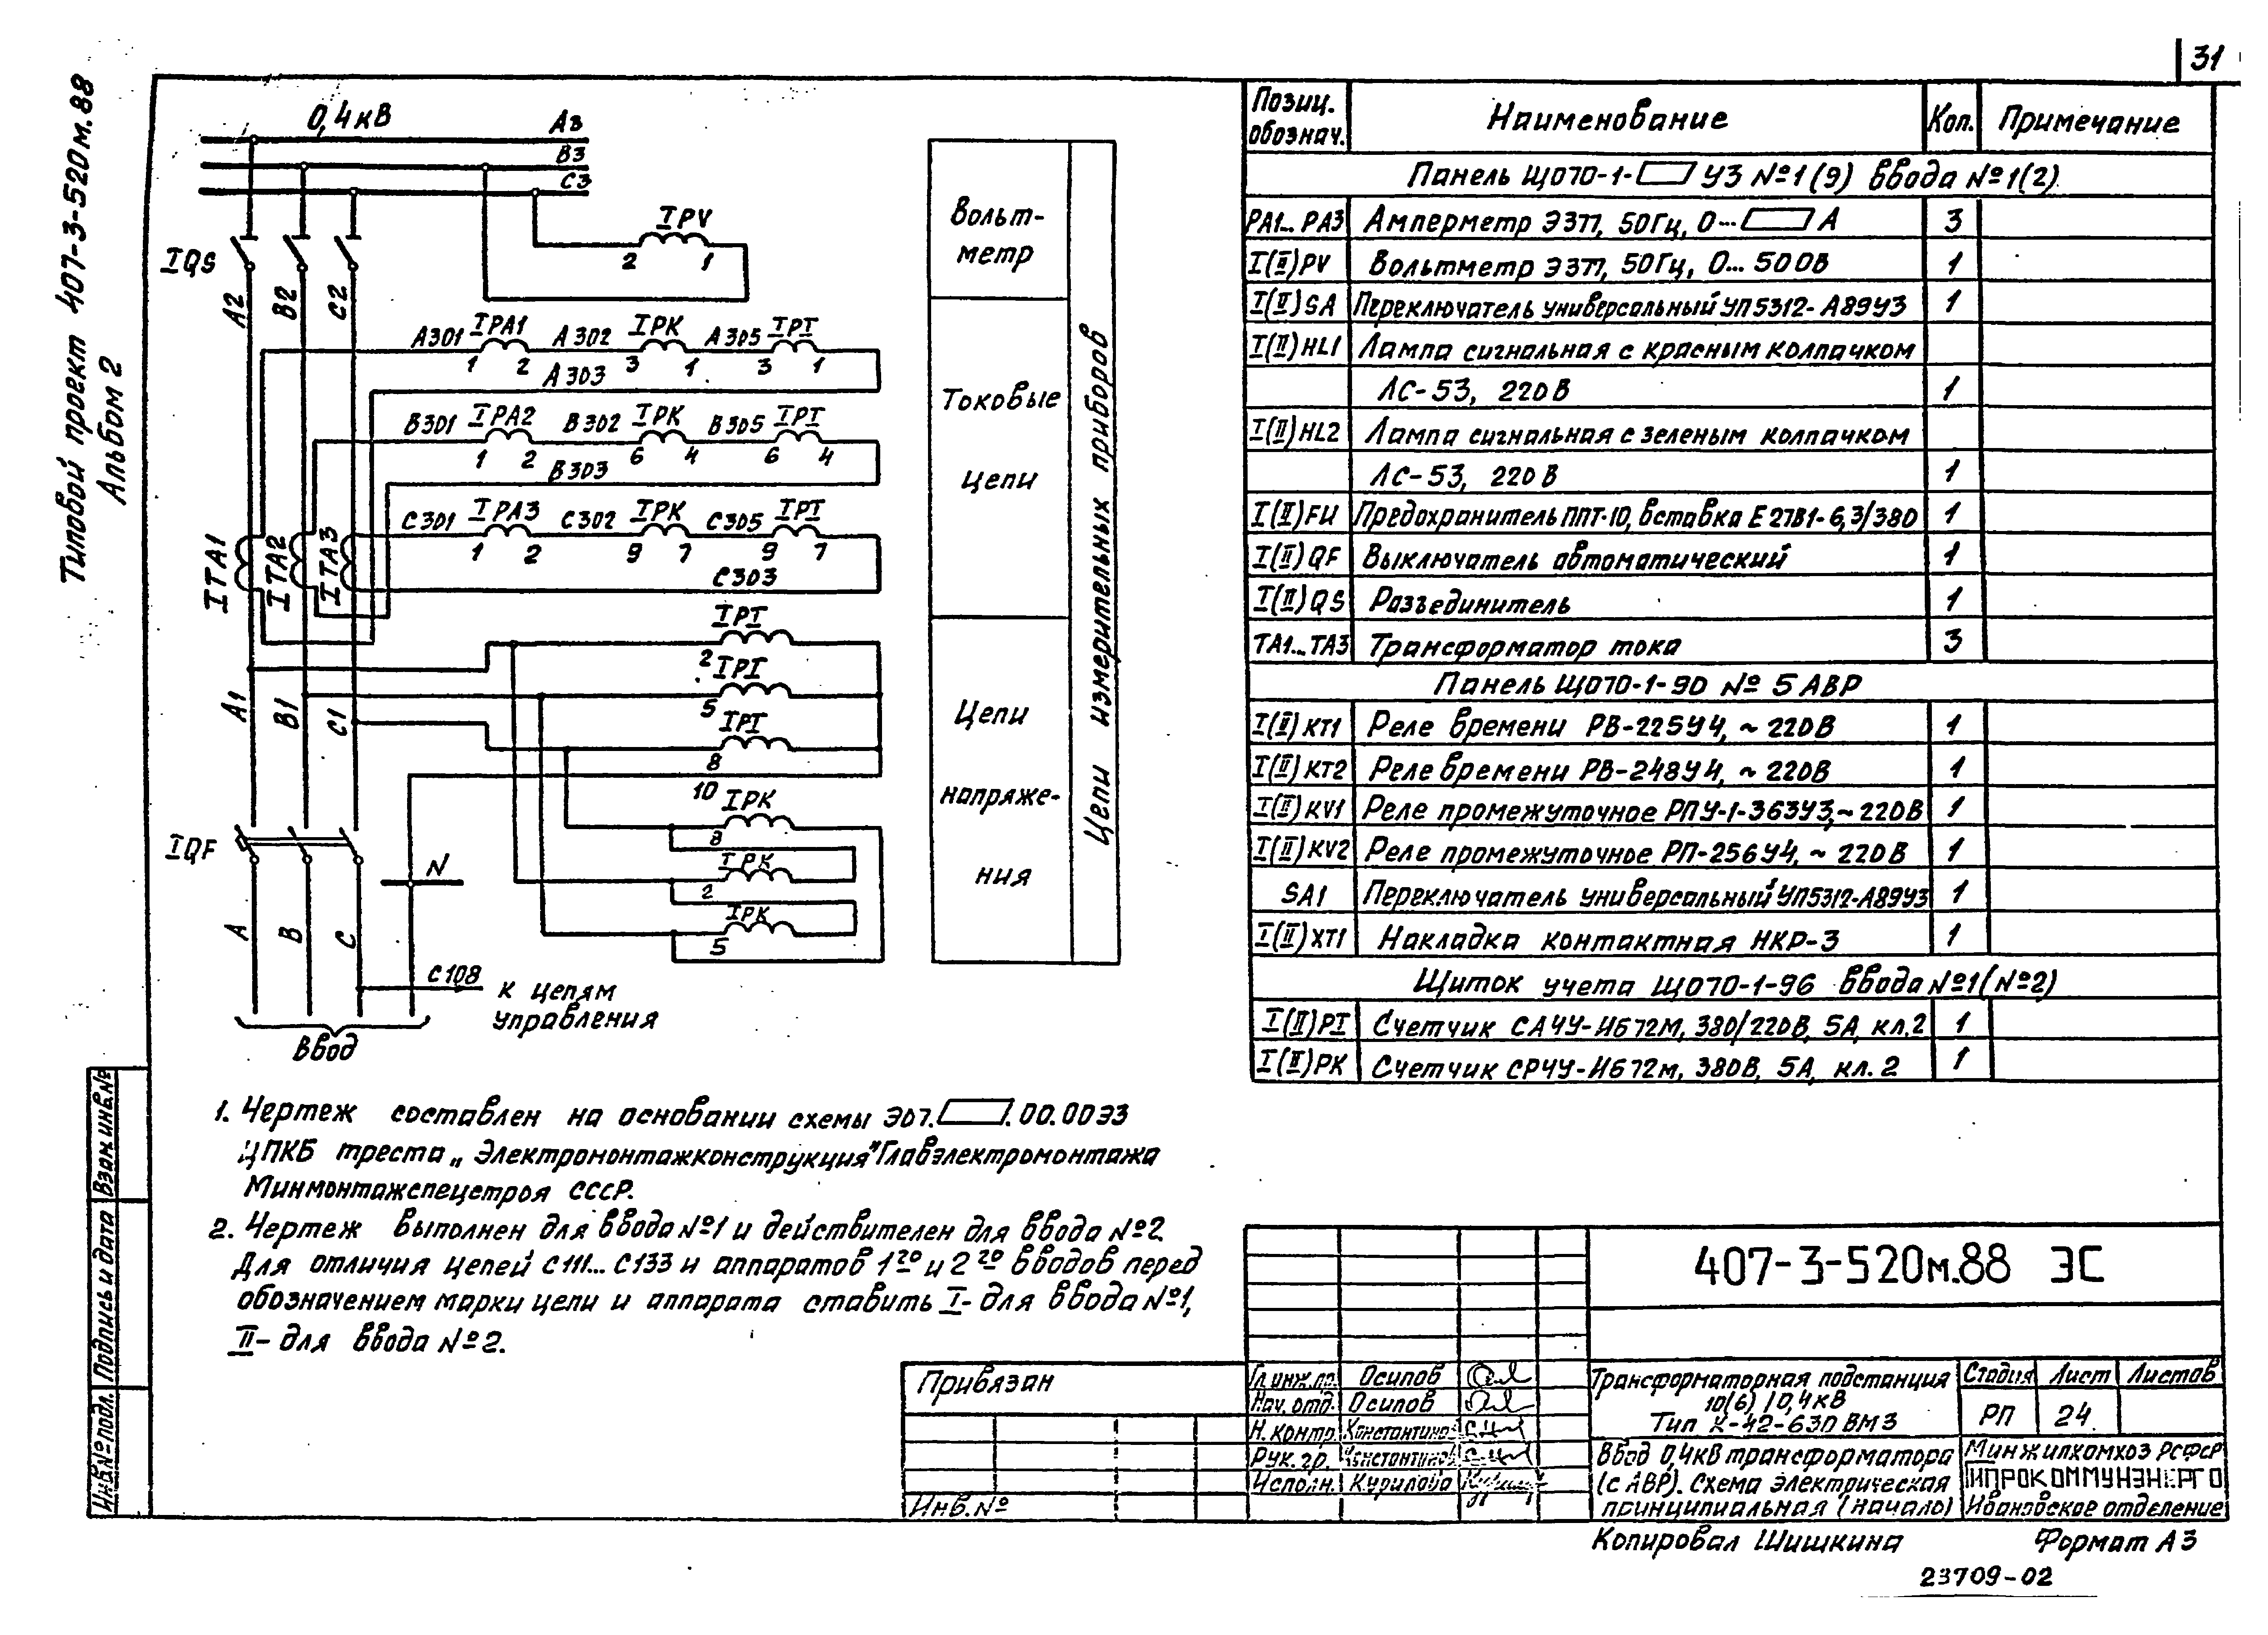 31
Типовой проект 407-3-520м.88
Альбом 2
0,4кВ
А3
В3
С3
IPV
2 1
IQS
А2 В2 С2
А301 IPA1 А302 IPK А305 IPI
1 2 3 1 3 1
А303
В301 IPA2 В302 IPK В305 IPI
1 2 6 4 6 4
В303
С301 IPA3 С302 IPK С305 IPI
1 2 9 7 9 7
С303
ITA1 ITA2 ITA3
IPI
2
IPI
5
IPI
8
10
А1 В1 С1
IPK
8
IPK
2
IPK
5
IQF
N
А В С
С108
к цепям
управления
Ввод
Вольт-
метр
Токовые
цепи
Цепи
напряже-
ния
Цепи измерительных приборов
Позиц. обознач. Наименование Кол. Примечание
Панель ЩО70-1- У3 №1(9) Ввода №1(2)
PA1...PA3 Амперметр Э377, 50Гц, 0... А 3
I(II)PV Вольтметр Э377, 50Гц, 0...500В 1
I(II)SA Переключатель универсальный УП5312-А89У3 1
I(II)HL1 Лампа сигнальная с красным колпачком
АС-53, 220В 1
I(II)HL2 Лампа сигнальная с зеленым колпачком
АС-53, 220В 1
I(II)FU Предохранитель ППТ-10, вставка Е27В1-6,3/380 1
I(II)QF Выключатель автоматический 1
I(II)QS Разъединитель 1
TA1...TA3 Трансформатор тока 3
Панель ЩО70-1-90 №5 АВР
I(II)KT1 Реле времени РВ-225У4, ~220В 1
I(II)KT2 Реле времени РВ-248У4, ~220В 1
I(II)KV1 Реле промежуточное РПУ-1-363У3, ~220В 1
I(II)KV2 Реле промежуточное РП-256У4, ~220В 1
SA1 Переключатель универсальный УП5312-А89У3 1
I(II)XT1 Накладка контактная НКР-3 1
Щиток учета ЩО70-1-96 Ввода №1(№2)
I(II)PI Счетчик СА4У-И672М, 380/220В, 5А, кл.2 1
I(II)PK Счетчик СР4У-И672м, 380В, 5А, кл.2 1
1. Чертеж составлен на основании схемы Э07. .00.00Э3
ЦПКБ треста „Электромонтажконструкция" Главэлектромонтажа
Минмонтажспецстроя СССР.
2. Чертеж выполнен для ввода №1 и действителен для ввода №2.
Для отличия цепей С111...С133 и аппаратов 1го и 2го вводов перед
обозначением марки цепи и аппарата ставить I- для ввода №1,
II- для ввода №2.
Взам.инв.№
Подпись и дата
Инв.№подл.
Привязан
Инв.№
407-3-520м.88 ЭС
Гл.инж.пр. Осипов
Нач.отд. Осипов
Н.контр. Константинова
Рук.гр. Константинова
Исполн. Курилова
Трансформаторная подстанция
10(6)/0,4кВ
Тип К-42-630ВМ3
Стадия Лист Листов
РП 24
Ввод 0,4кВ трансформатора
(с АВР). Схема электрическая
принципиальная (начало)
Минжилкомхоз РСФСР
ГИПРОКОММУНЭНЕРГО
Ивановское отделение
Копировал Шишкина
Формат А3
23709-02